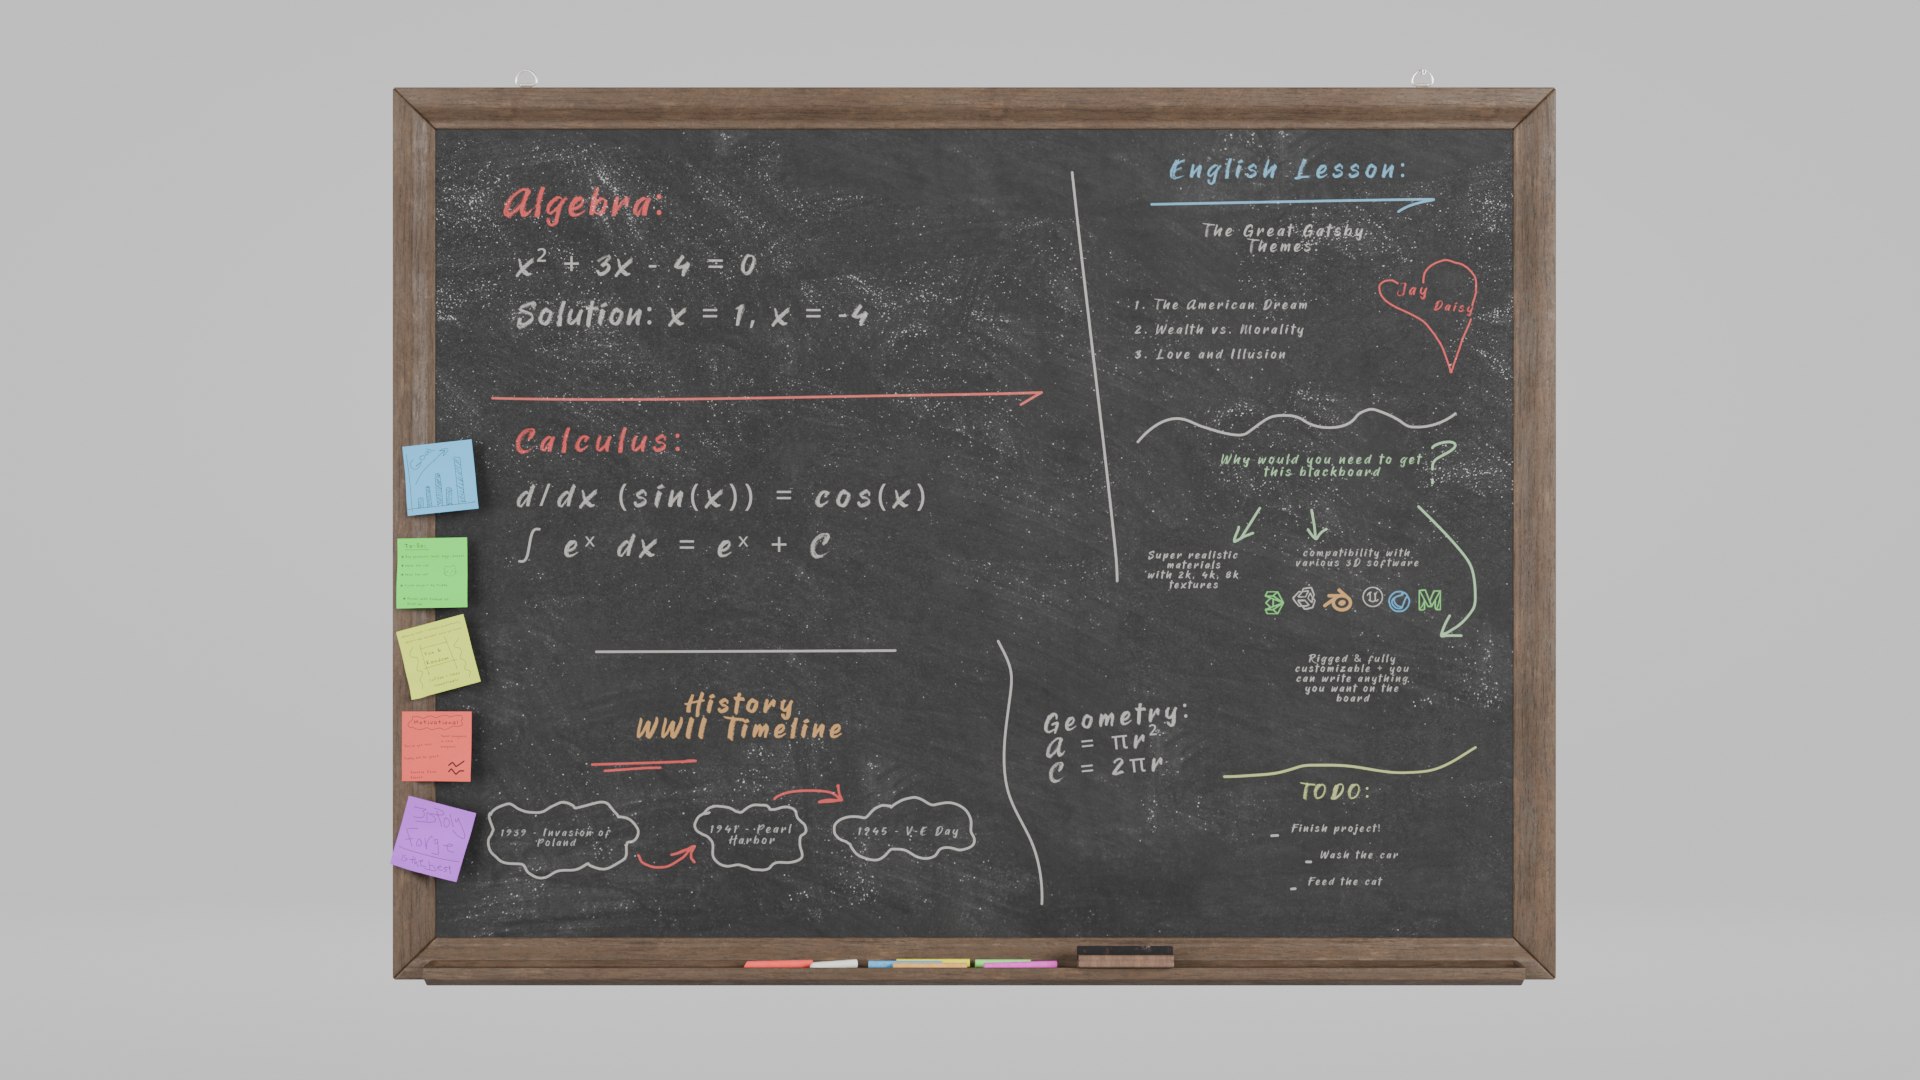 Algebra:
x² + 3x - 4 = 0
Solution: x = 1, x = -4
Calculus:
d/dx (sin(x)) = cos(x)
∫ eˣ dx = eˣ + C
History
WWII Timeline
1939 - Invasion of
Poland
1941 - Pearl
Harbor
1945 - V-E Day
Geometry:
A = πr²
C = 2πr
English Lesson:
The Great Gatsby
Themes:
1. The American Dream
2. Wealth vs. Morality
3. Love and Illusion
Jay
Daisy
Why would you need to get
this blackboard
?
Super realistic
materials
with 2k, 4k, 8k
textures
compatibility with
various 3D software
Rigged & fully
customizable - you
can write anything
you want on the
board
TODO:
- Finish project!
- Wash the car
- Feed the cat
Motivational
3DPoly
Forge
is the best